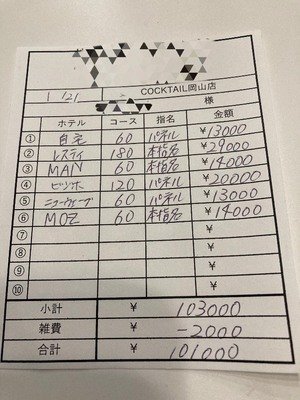 COCKTAIL岡山店
1/21 様
ホテル コース 指名 金額
① 自宅 60 パネル ¥13000
② レスティ 180 本指名 ¥29000
③ MAN 60 本指名 ¥14000
④ 120 パネル ¥20000
⑤ ニューウェーブ 60 パネル ¥13000
⑥ MOZ 60 本指名 ¥14000
⑦ ¥
⑧ ¥
⑨ ¥
⑩ ¥
小計 ¥ 103000
雑費 ¥ -2000
合計 ¥ 101000